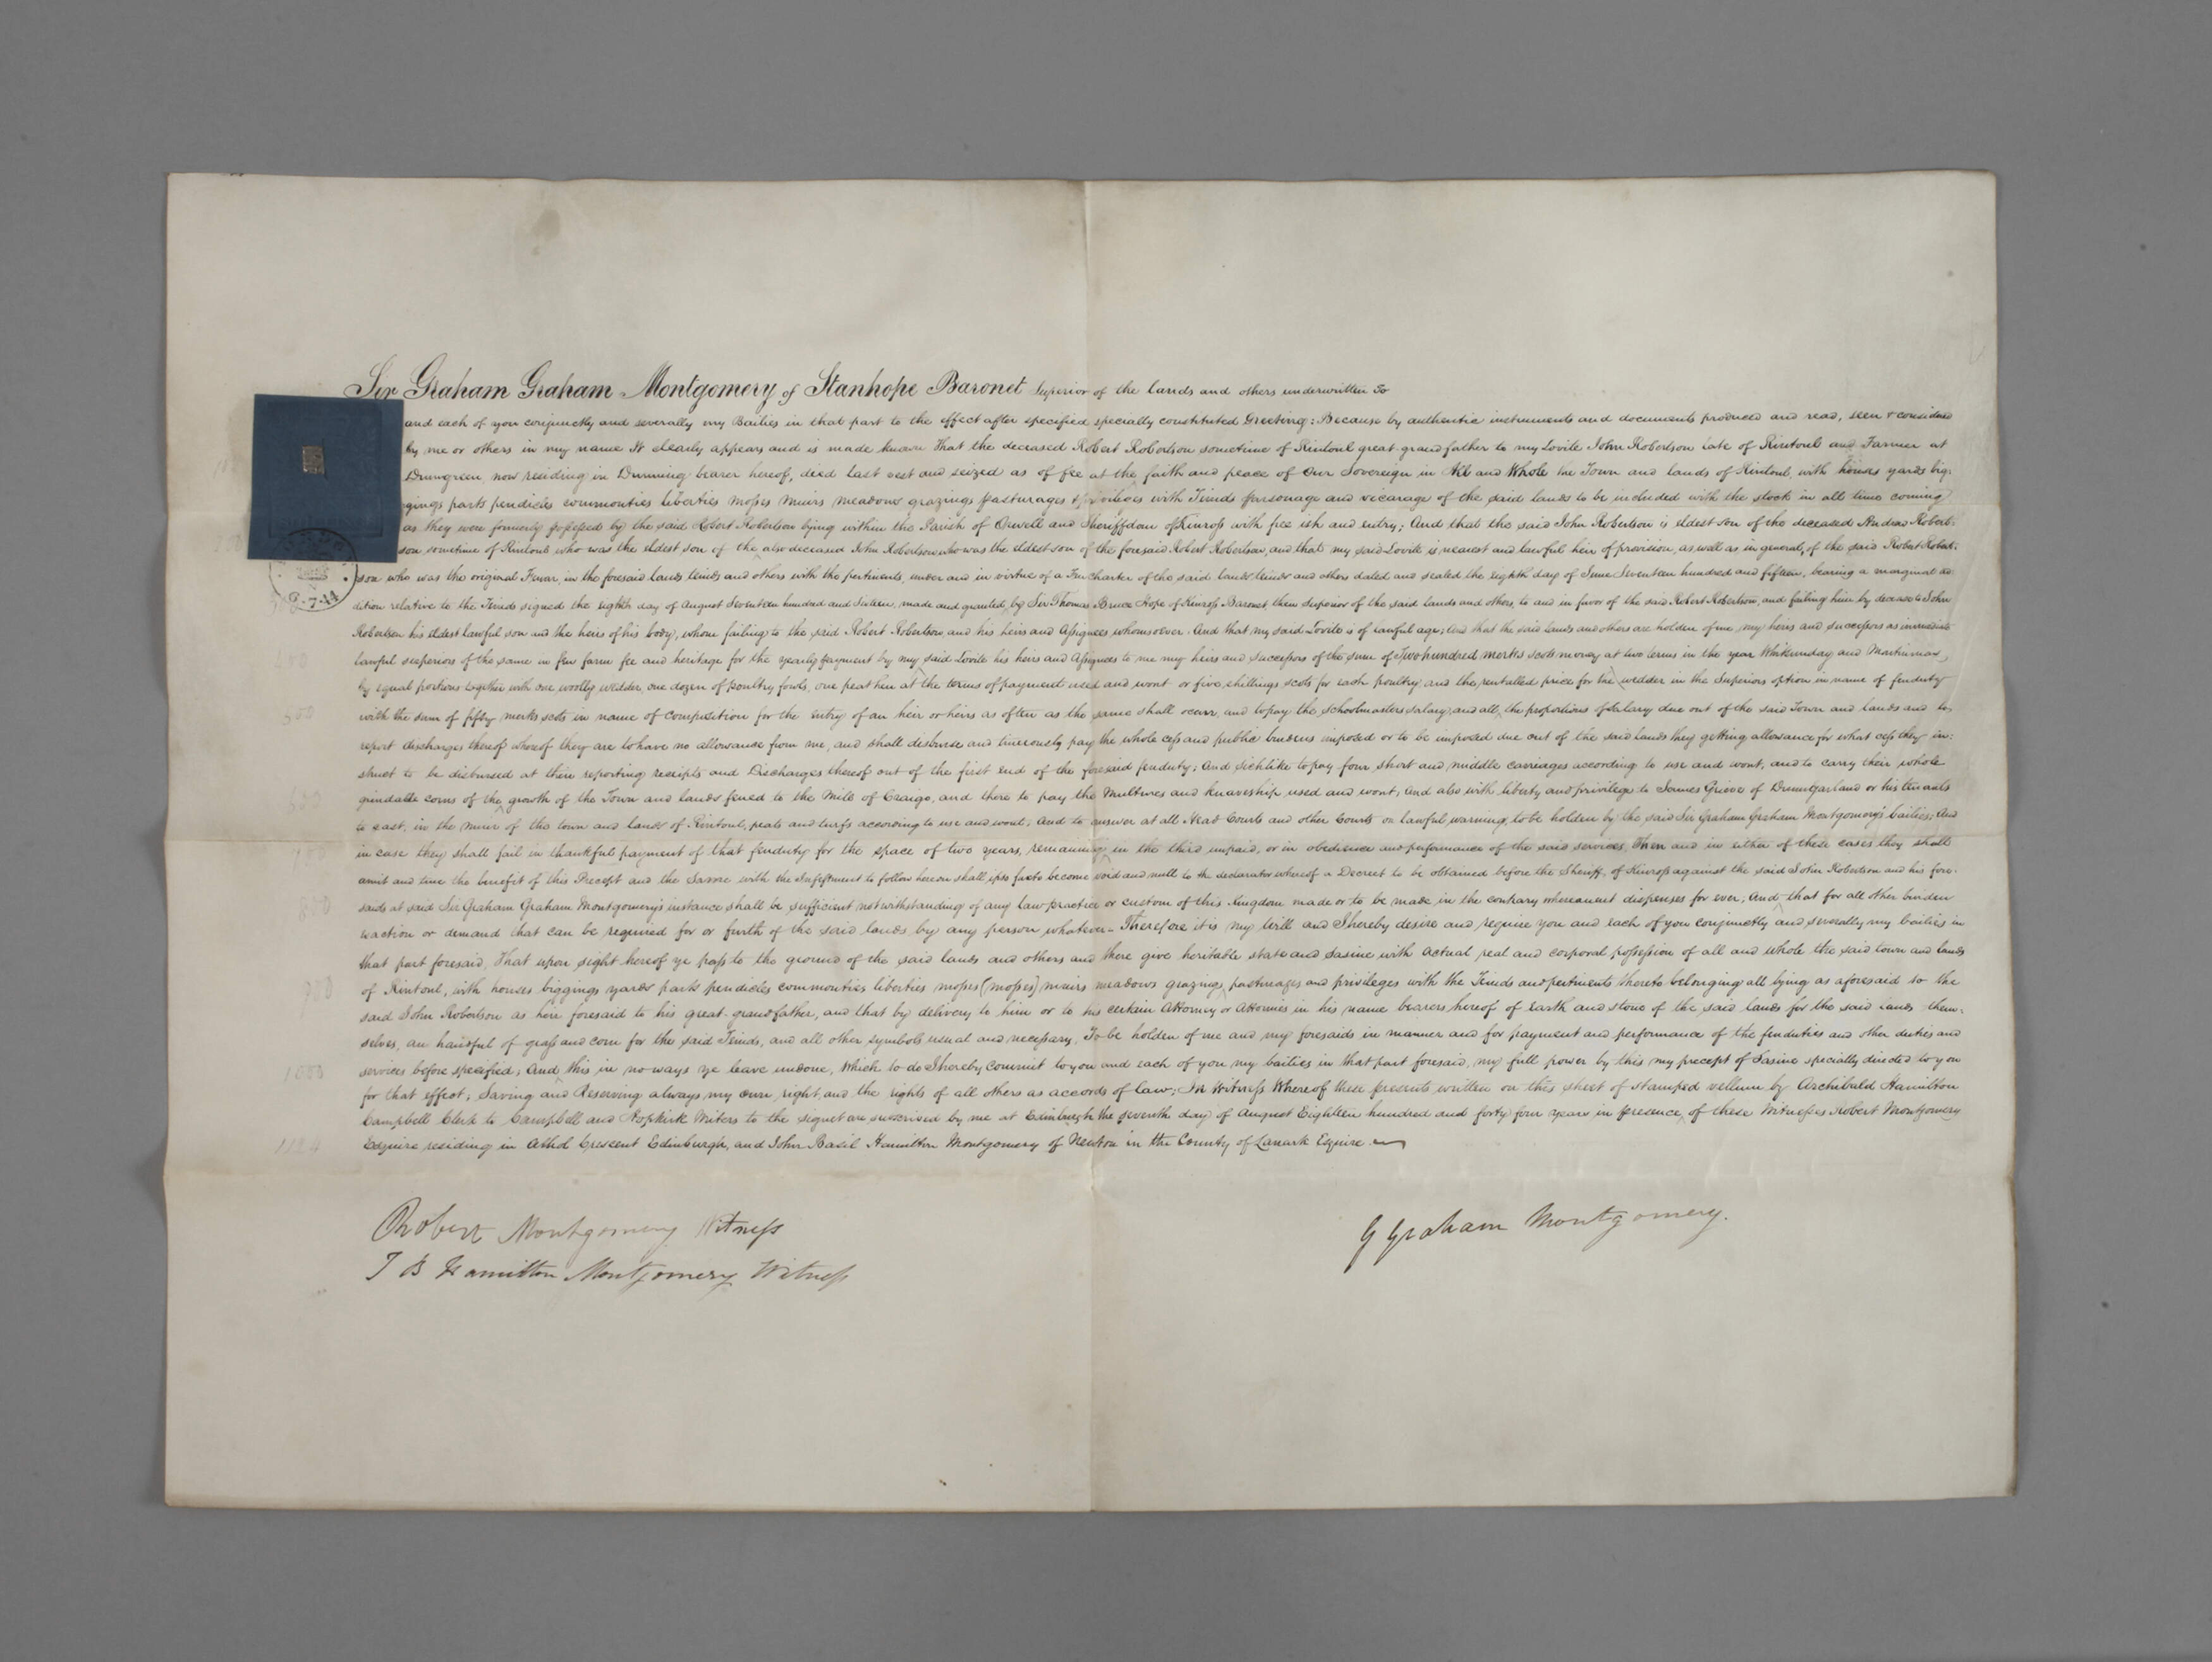 Sir Graham Graham Montgomery of Stanhope Baronet Superior of the lands and others underwritten To
and each of you conjunctly and severally my Bailies in that part to the effect after specified specially constituted Greeting: Because by authentic instruments and documents produced and read, seen & considered
by me or others in my name It clearly appears and is made known That the deceased Robert Robertson sometime of Rintoul great grandfather to my Lovite John Robertson late of Rintoul and Farmer at
Drungreen now residing in Dunning bearer hereof, died last vest and seized as of fee at the faith and peace of Our Sovereign in All and Whole the Town and lands of Rintoul, with houses yards big:
gings parts pendicles commonties liberties mosses muirs meadows grazings pasturages & privileges with Teinds parsonage and vicarage of the said lands to be included with the stock in all time coming
as they were formerly possessed by the said Robert Robertson lying within the Parish of Orwell and Sheriffdom of Kinross with free ish and entry; And that the said John Robertson is eldest son of the deceased Andrew Robert:
son sometime of Rintoul who was the eldest son of the also deceased John Robertson who was the eldest son of the foresaid Robert Robertson, and that my said Lovite is nearest and lawful heir of provision, as well as in general, of the said Robert Robert:
son who was the original Feuar, in the foresaid lands teinds and others with the pertinents, under and in virtue of a Feu Charter of the said lands teinds and others dated and sealed the eighth day of June Seventeen hundred and fifteen, bearing a marginal ad
dition relative to the Teinds signed the eighth day of August Seventeen hundred and Sixteen, made and granted by Sir Thomas Bruce Hope of Kinross Baronet, then Superior of the said lands and others, to and in favor of the said Robert Robertson, and failing him by decease to John
Robertson his eldest lawful son and the heirs of his body, whom failing to the said Robert Robertson and his heirs and Assignees whomsoever. And that my said Lovite is of lawful age; And that the said lands and others are holden of me, my heirs and successors as immediate
lawful superiors of the same in feu farm fee and heritage for the yearly payment by my said Lovite his heirs and Assignees to me my heirs and successors of the sum of Two hundred merks scots money at two terms in the year Whitsunday and Martinmas,
by equal portions together with one woolly wedder, one dozen of poultry fowls, one peat hen at the terms of payment used and wont or five shillings scots for each poultry and the rentalled price for the wedder in the Superiors option in name of feuduty
with the sum of fifty merks scots in name of composition for the entry of an heir or heirs as often as the same shall occurr, and to pay the Schoolmasters salary, and all the proportions of salary due out of the said Town and lands and to
report discharges thereof whereof they are to have no allowance from me, and shall disburse and timeously pay the whole cess and public burdens imposed or to be imposed due out of the said lands they getting allowance for what cess they in:
struct to be disbursed at their reporting receipts and Discharges thereof out of the first end of the foresaid feuduty; And sicklike to pay four short and middle carriages according to use and wont, and to carry their whole
grindable corns of the growth of the Town and lands feued to the Miln of Craigo, and there to pay the Multures and knaveship used and wont; And also with liberty and privilege to James Grieve of Drumgarland or his tenants
to cast, in the muir of the town and lands of Rintoul, peats and turfs according to use and wont; And to answer at all Head Courts and other Courts on lawful warning, to be holden by the said Sir Graham Graham Montgomery's bailies; And
in case they shall fail in thankful payment of that feuduty for the space of two years, remaining in the third unpaid, or in obedience and performance of the said services, Then and in either of these cases they shall
amit and tine the benefit of this Precept and the Same with the Infeftment to follow hereon shall ipso facto become void and null to the declarator whereof a Decreet to be obtained before the Sheriff of Kinross against the said John Robertson and his fore:
saids at said Sir Graham Graham Montgomery's instance shall be sufficient notwithstanding of any law practice or custom of this Kingdom made or to be made in the contrary whereanent dispenses for ever; And that for all other burden
exaction or demand that can be required for or furth of the said lands by any person whatever - Therefore it is my Will and I hereby desire and require you and each of you conjunctly and severally my bailies in
that part foresaid, That upon sight hereof ye pass to the ground of the said lands and others and there give heritable state and sasine with actual real and corporal possession of all and whole the said town and lands
of Rintoul, with houses biggings yards parts pendicles commonties liberties mosses [mosses] muirs meadows grazings pasturages and privileges with the Teinds and pertinents thereto belonging all lying as aforesaid to the
said John Robertson as heir foresaid to his great-grandfather, and that by delivery to him or to his certain Attorney or Attornies in his name bearers hereof of Earth and stone of the said lands for the said lands them:
selves, an handful of grass and corn for the said Teinds, and all other symbols usual and necessary, To be holden of me and my foresaids in manner and for payment and performance of the feuduties and other duties and
services before specified; And this in no ways ye leave undone, Which to do I hereby commit to you and each of you my bailies in that part foresaid, my full power by this my precept of Sasine specially directed to you
for that effect; Saving and Reserving always my own right and the rights of all others as accords of law; In Witness Whereof these presents written on this sheet of stamped vellum by Archibald Hamilton
Campbell Clerk to Campbell and Hopkirk Writers to the signet are subscribed by me at Edinburgh the seventh day of August Eighteen hundred and forty four years in presence of these Witnesses Robert Montgomery
Esquire residing in Athol Crescent Edinburgh, and John Basil Hamilton Montgomery of Newton in the County of Lanark Esquire
Robert Montgomery Witness
J B Hamilton Montgomery Witness
G Graham Montgomery.
8.7.44
500
800
1000
1124